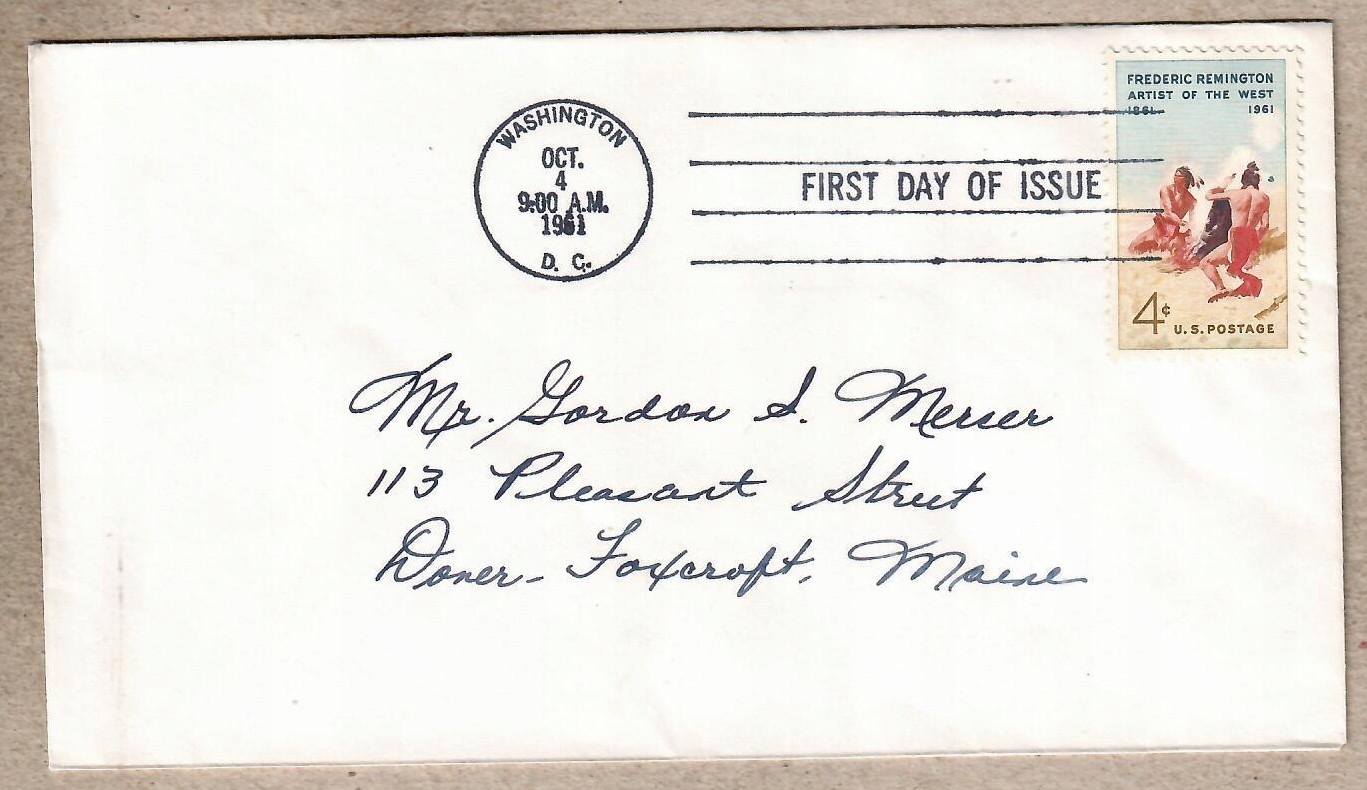 WASHINGTON
OCT.
4
9:00 A.M.
1961
D. C.
FIRST DAY OF ISSUE
FREDERIC REMINGTON
ARTIST OF THE WEST
1861 1961
4¢ U.S. POSTAGE
Mr. Gordon S. Merser
113 Pleasant Street
Dover-Foxcroft, Maine